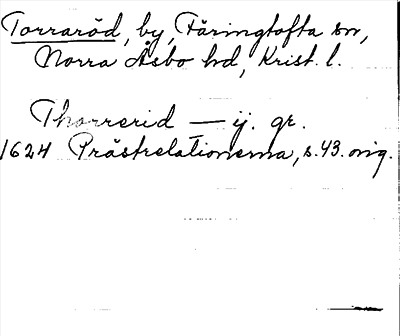 Torraröd, by, Färingtofta sn,
Norra Åsbo hd, Krist. l.
Thorrerid — ij. gr.
1624 Prästrelationerna, s. 43. orig.